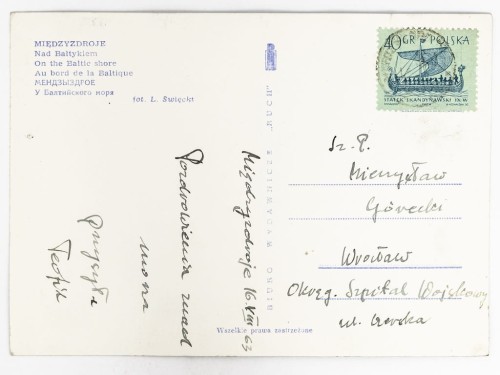 MIĘDZYZDROJE
Nad Bałtykiem
On the Baltic shore
Au bord de la Baltique
МЕНДЗЫЗДГОЕ
У Балтийского моря
fot. L. Święcki
40 GR POLSKA
STATEK SKANDYNAWSKI IX. W
BIURO WYDAWNICZE "RUCH"
Międzyzdroje 16 VIII 63
Pozdrowienia znad
morza
Sz. P.
Mieczysław
Górecki
Wrocław
Okręg. Szpital Wojskowy
ul.
Wszelkie prawa zastrzeżone